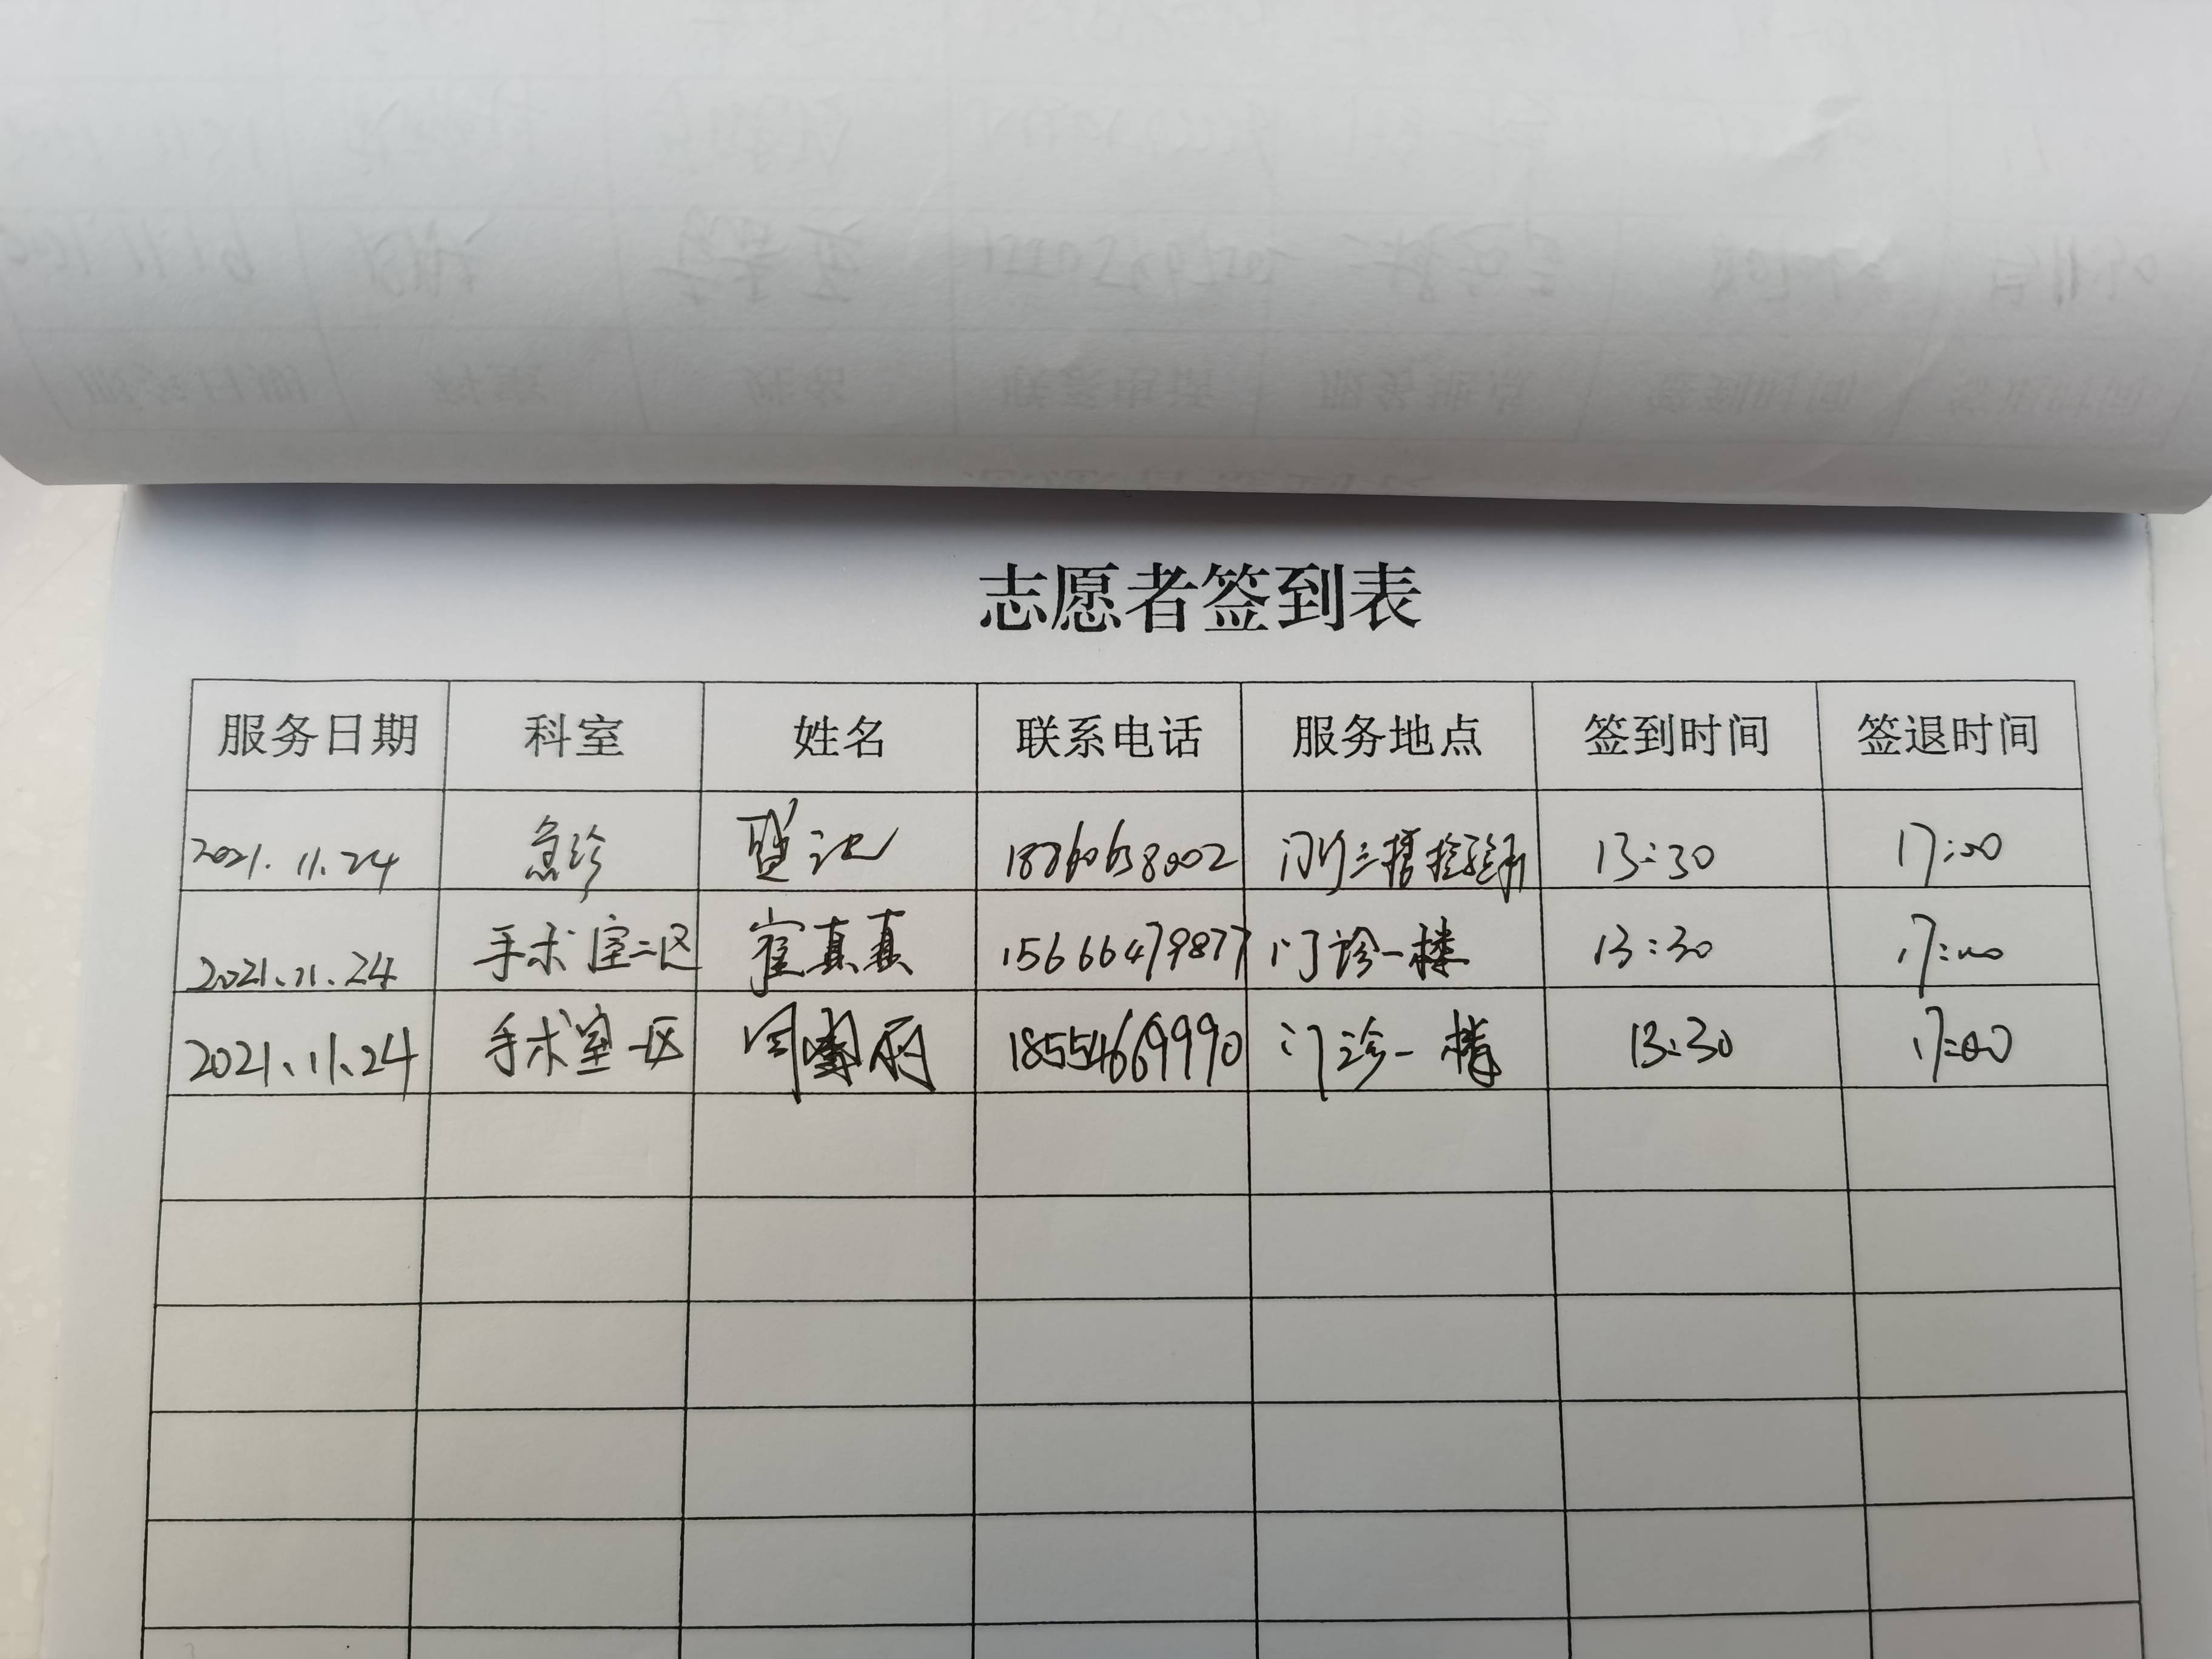 志愿者签到表
服务日期 科室 姓名 联系电话 服务地点 签到时间 签退时间
2021.11.24 急诊 18860658002 门诊三楼 13:30 17:00
2021.11.24 手术室二区 崔真真 15666479877 门诊一楼 13:30 17:00
2021.11.24 手术室一区 18554669990 门诊一楼 13:30 17:00